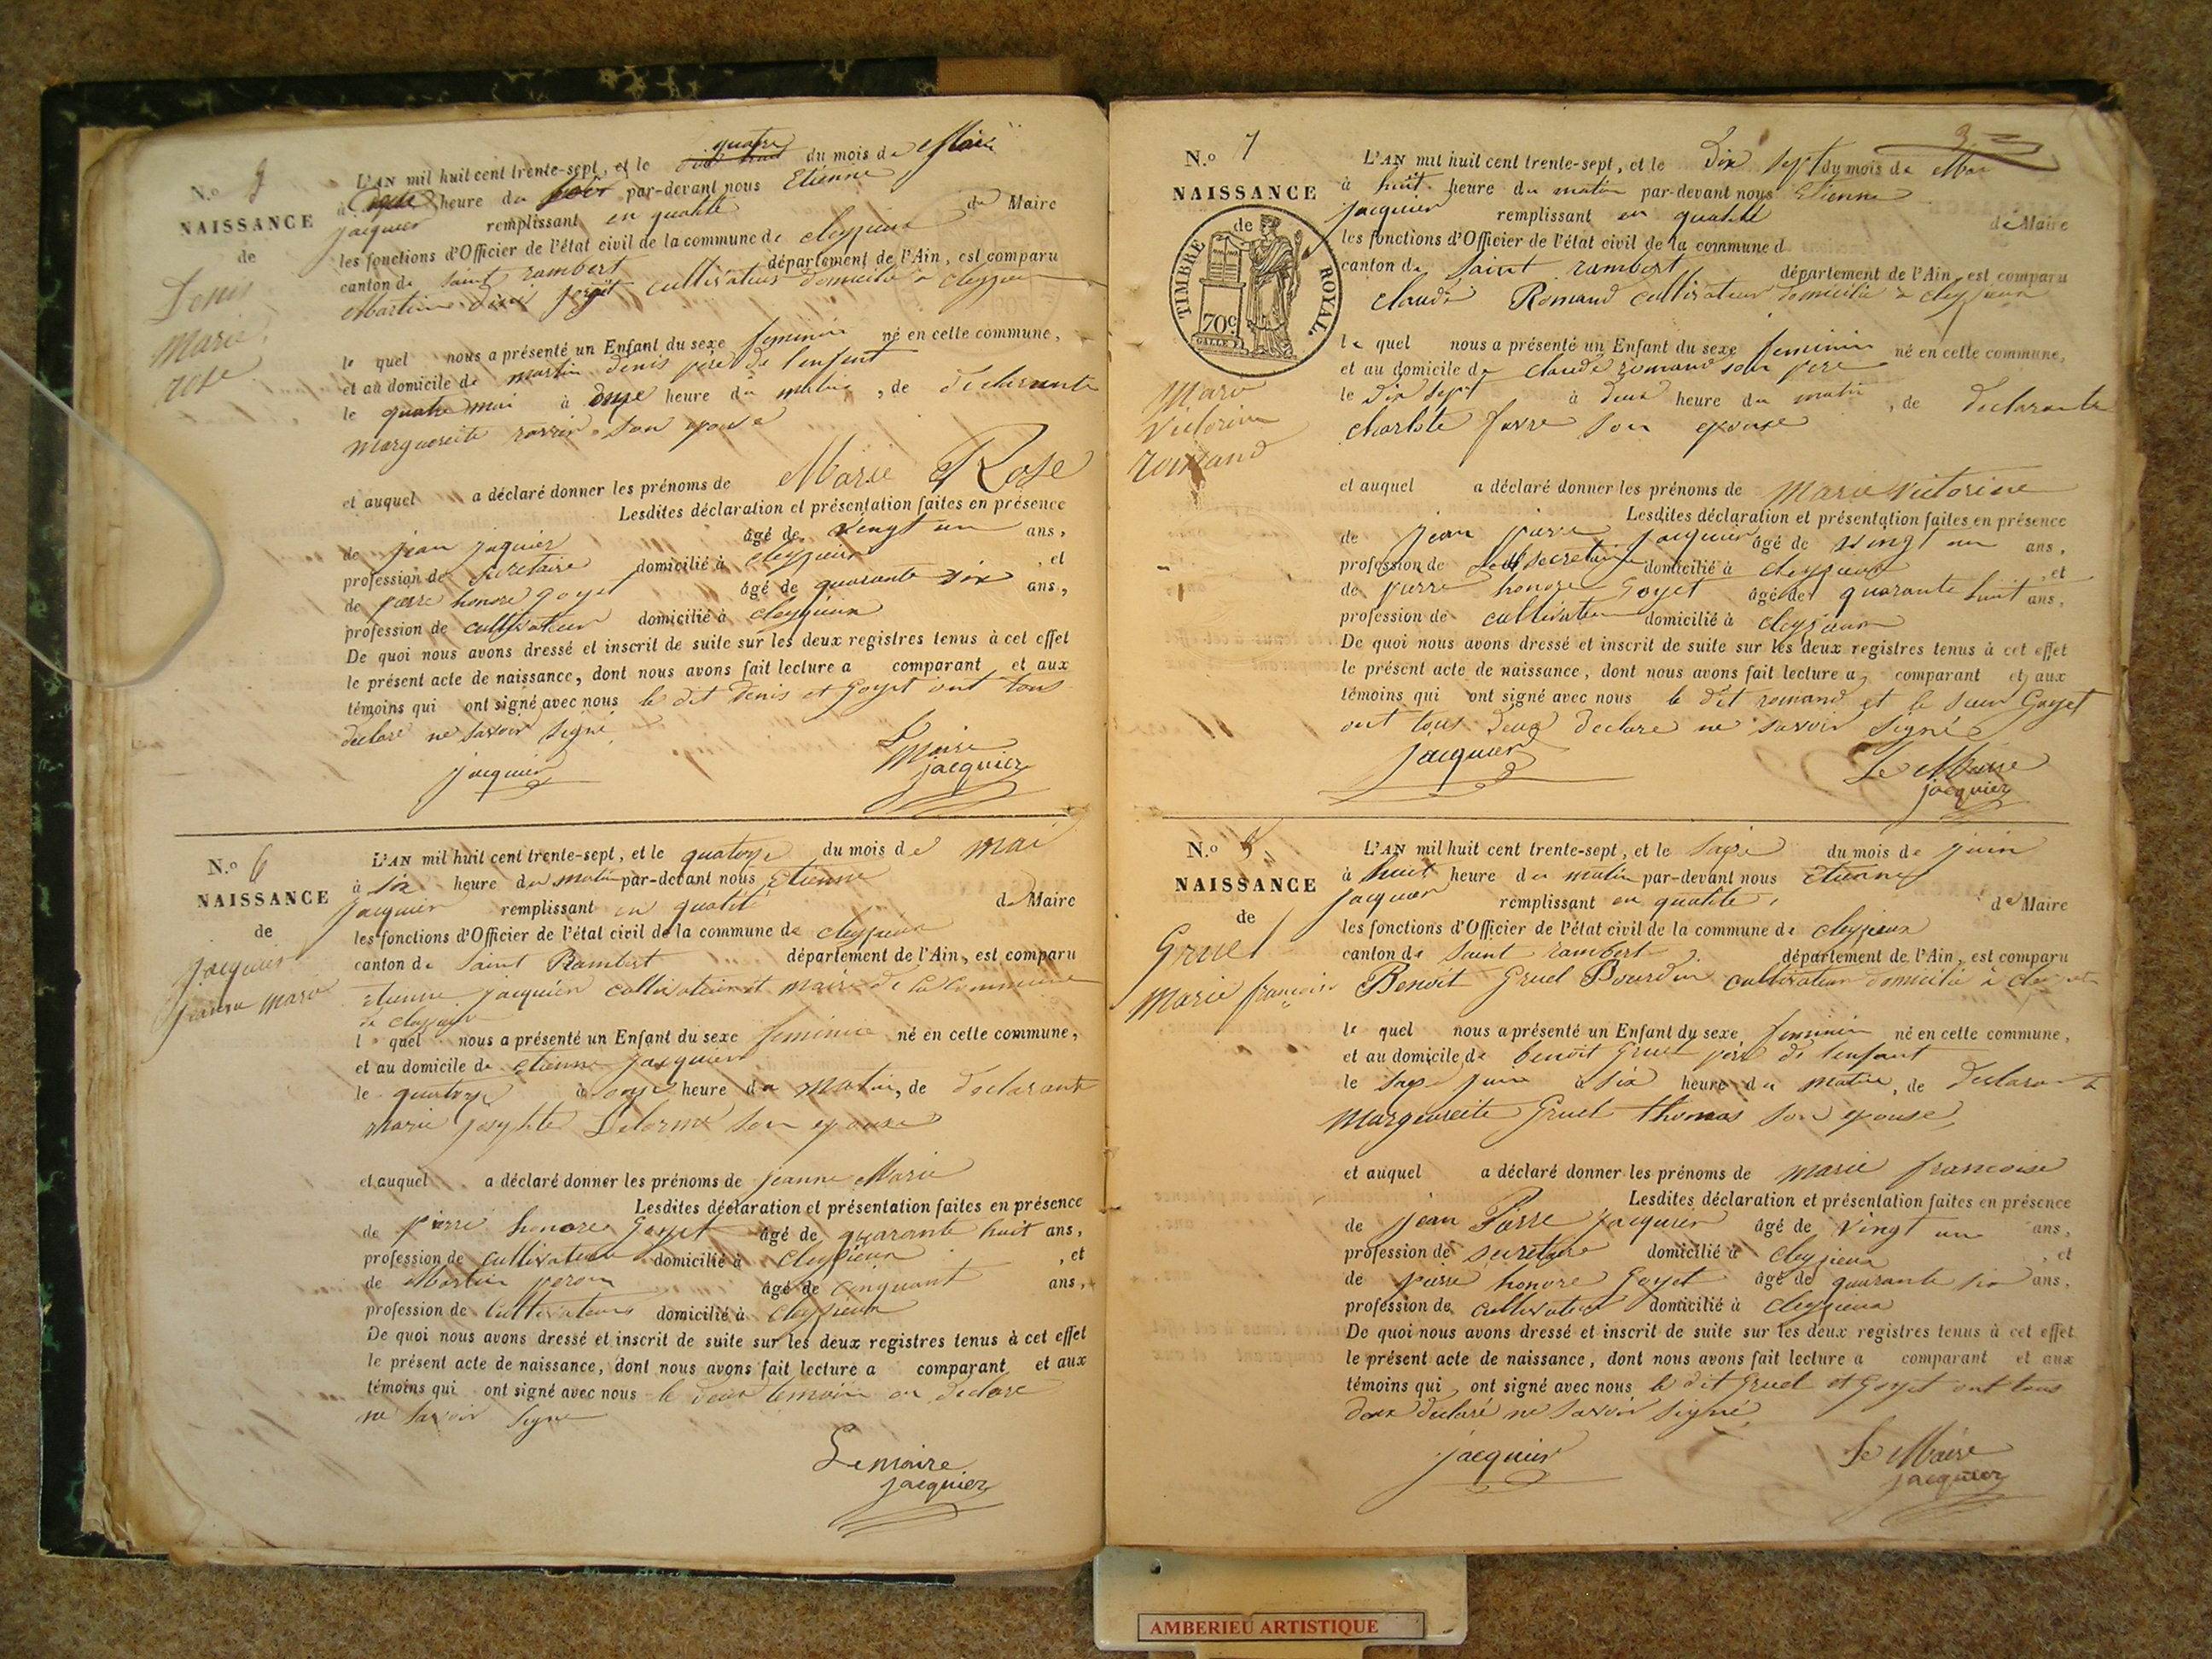 N.o
NAISSANCE
de
Denis
Marie
rose
quatre
L'AN mil huit cent trente-sept, et le du mois de Mai
à heure du soir par-devant nous Etienne
jacquier remplissant en qualité de Maire
les fonctions d'Officier de l'état civil de la commune de cleyzieux
canton de saint rambert département de l'Ain, est comparu
Martin denis cultivateur domicilié à cleyzieu
le quel nous a présenté un Enfant du sexe feminin né en cette commune,
et au domicile de martin denis père de l'enfant
le quatre mai à onze heure du matin, de declarante
marguerite son epouse
et auquel a déclaré donner les prénoms de Marie Rose
Lesdites déclaration et présentation faites en présence
de jean jaquier âgé de vingt un ans,
profession de secretaire domicilié à cleyzieux, et
de pierre honore goyet âgé de quarante six ans,
profession de cultivateur domicilié à cleyzieux
De quoi nous avons dressé et inscrit de suite sur les deux registres tenus à cet effet
le présent acte de naissance, dont nous avons fait lecture a comparant et aux
témoins qui ont signé avec nous le dit denis et Goyet ont tous
declaré ne savoir signé
jacquier
Le Maire
jacquier
N.o 6
NAISSANCE
de
jacquier
jeanne marie
L'AN mil huit cent trente-sept, et le quatorze du mois de mai
à six heure du matin par-devant nous Etienne
jacquier remplissant en qualité de Maire
les fonctions d'Officier de l'état civil de la commune de cleyzieux
canton de Saint Rambert département de l'Ain, est comparu
etienne jacquier cultivateur et maire de la commune
de cleyzieux
l quel nous a présenté un Enfant du sexe feminin né en cette commune,
et au domicile de etienne jacquier
le quatorze à onze heure du matin, de declarante
marie josephte Delorme son epouse
et auquel a déclaré donner les prénoms de jeanne Marie
Lesdites déclaration et présentation faites en présence
de pierre honore Goyet âgé de quarante huit ans,
profession de cultivateur domicilié à cleyzieux, et
de Martin âgé de cinquant ans,
profession de cultivateur domicilié à cleyzieux
De quoi nous avons dressé et inscrit de suite sur les deux registres tenus à cet effet
le présent acte de naissance, dont nous avons fait lecture a comparant et aux
témoins qui ont signé avec nous le deux temoin on declare
ne savoir signe
Le maire
jacquier
3
N.o 7
NAISSANCE
de
TIMBRE ROYAL.
70c
Marie
Victorine
romand
L'AN mil huit cent trente-sept, et le Dix sept du mois de Mai
à huit heure du matin par-devant nous Etienne
jacquier remplissant en qualité de Maire
les fonctions d'Officier de l'état civil de la commune d
canton de Saint rambert département de l'Ain, est comparu
claude Romand cultivateur domicilié à cleyzieux
le quel nous a présenté un Enfant du sexe feminin né en cette commune,
et au domicile de claude romand son pere
le dix sept à deux heure du matin, de declarante
charlote favre son epouse
et auquel a déclaré donner les prénoms de Marie Victorine
Lesdites déclaration et présentation faites en présence
de jean pierre jacquier âgé de vingt un ans,
profession de secretaire domicilié à cleyzieux, et
de pierre honore Goyet âgé de quarante huit ans,
profession de cultivateur domicilié à cleyzieux
De quoi nous avons dressé et inscrit de suite sur les deux registres tenus à cet effet
le présent acte de naissance, dont nous avons fait lecture a comparant et aux
témoins qui ont signé avec nous le dit romand et le sieur Goyet
ont tous deux declaré ne savoir signé
jacquier
Le Maire
jacquier
N.o 8
NAISSANCE
de
Gruel
Marie francoise
L'AN mil huit cent trente-sept, et le saze du mois de juin
à huit heure du matin par-devant nous Etienne
jacquier remplissant en qualité de Maire
les fonctions d'Officier de l'état civil de la commune de cleyzieux
canton de Saint rambert département de l'Ain, est comparu
Benoit Gruel Bourdin cultivateur domicilié à
le quel nous a présenté un Enfant du sexe feminin né en cette commune,
et au domicile de benoit Gruel pere de l'enfant
le saze juin à six heure du matin, de declarante
Margueritte Gruel thomas son epouse
et auquel a déclaré donner les prénoms de marie francoise
Lesdites déclaration et présentation faites en présence
de jean Pierre jacquier âgé de vingt un ans,
profession de secretaire domicilié à cleyzieux, et
de pierre honore Goyet âgé de quarante six ans,
profession de cultivateur domicilié à cleyzieux
De quoi nous avons dressé et inscrit de suite sur les deux registres tenus à cet effet
le présent acte de naissance, dont nous avons fait lecture a comparant et aux
témoins qui ont signé avec nous le dit Gruel et Goyet ont tous
deux declaré ne savoir signé
jacquier
Le Maire
jacquier
AMBERIEU ARTISTIQUE